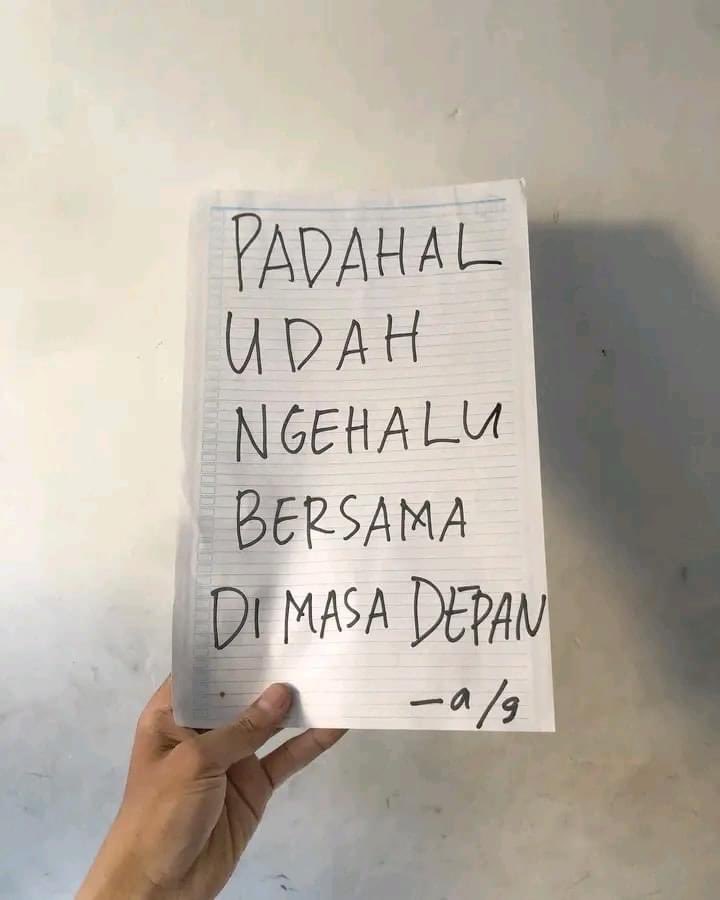 PADAHAL
UDAH
NGEHALU
BERSAMA
DI MASA DEPAN
-a/g